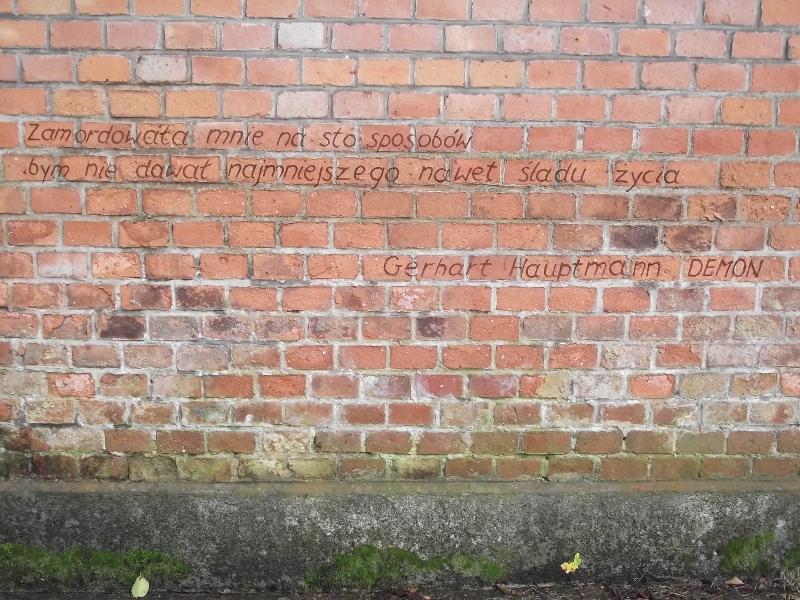 Zamordowała mnie na sto sposobów
bym nie dawał najmniejszego nawet śladu życia
Gerhart Hauptmann DEMON